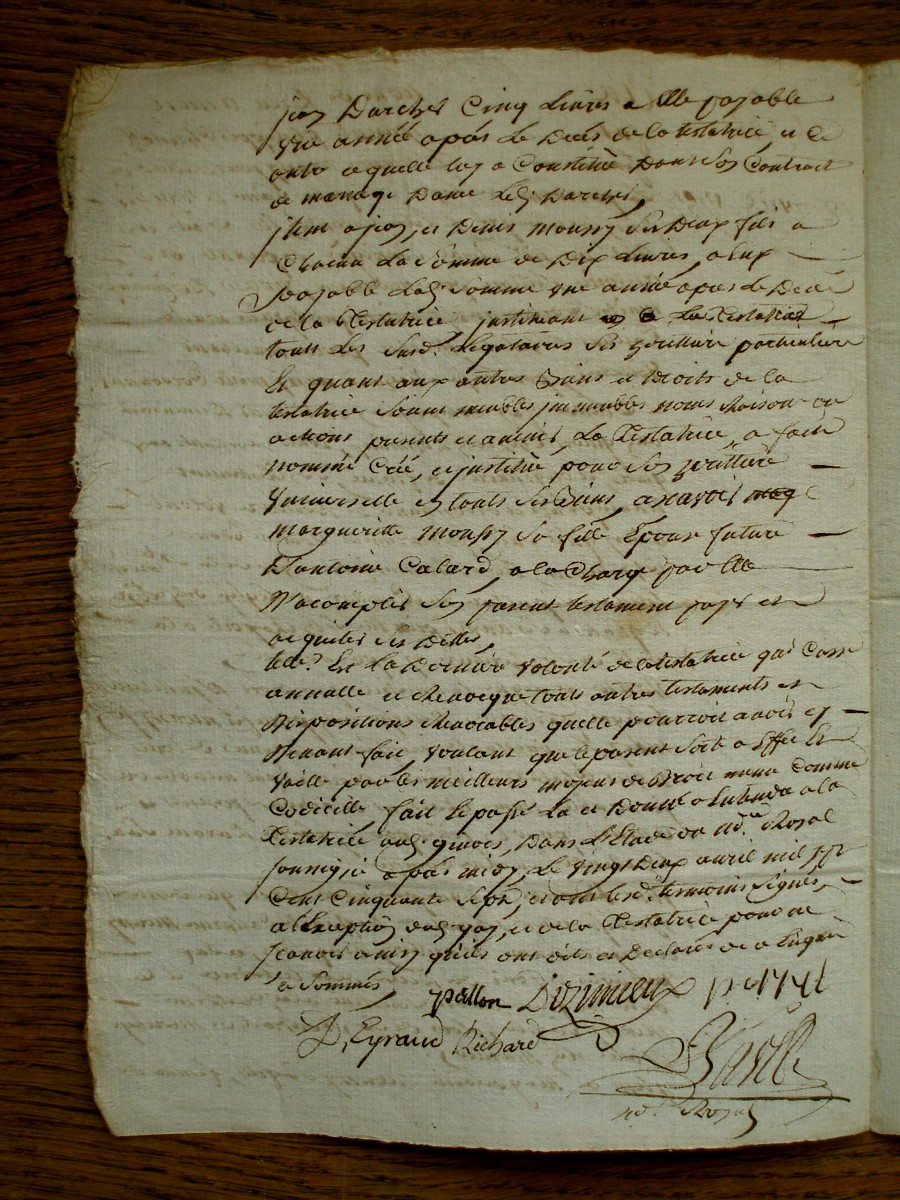 jean Darches Cinq Livres a Elle payable
une année après Le Decès de la testatrice, et ce
outre ce quelle luy a Constitué Dans son Contract
de mariage Davec Led. Darches,
jtem a jean, et Denis moussy ses Deux fils a
Chacun La somme de Dix Livres, a Eux
payable Lad. somme une année apres Le Decé
de la Testatrice, justituant La Testatrice
touts Les Susd. Legataires Ses heritiers particuliers
Et quant aux autres Biens et Droits de la
testatrice Soient meubles jmmeubles noms Raisons ou
actions presents et avenir, La Testatrice, a fait
nommé Créé, et justitué pour Son heritiere
Vniverselle en touts Ses Biens, a scavoir
margueritte moussy Sa fille Epouse future
D'antoine Calard, a la Charge par Elle
D'acomplir Son present testament payer et
acquiter Ses Dettes,
telle Est La Derniere Volonté de la testatrice qui Casse
annulle et Revocque touts autres testaments et
Dispositions Revocables quelle pourroit avoir cy
Devant fait, Voulant que le present Sorte a Effet Et
Vaille par les meilleurs moyens de Droit meme Comme
Codicille, fait Le passé Lu et Donné a Entendre a la
Testatrice aud. givors, Dans L'Etude du nore. Royal
soussigné après midy Le Vingt Deux avril mil sept
Cent Cinquante Sept, et ont Lesd. temoins Signés,
a l'Exception dud. gay, et de la Testatrice pour ne
scavoir ainsy qu'ils ont dits et Declarés de ce Enquis
et Sommés,
pallon Dizimieux
D, Eyraud Richard
nore. Royal